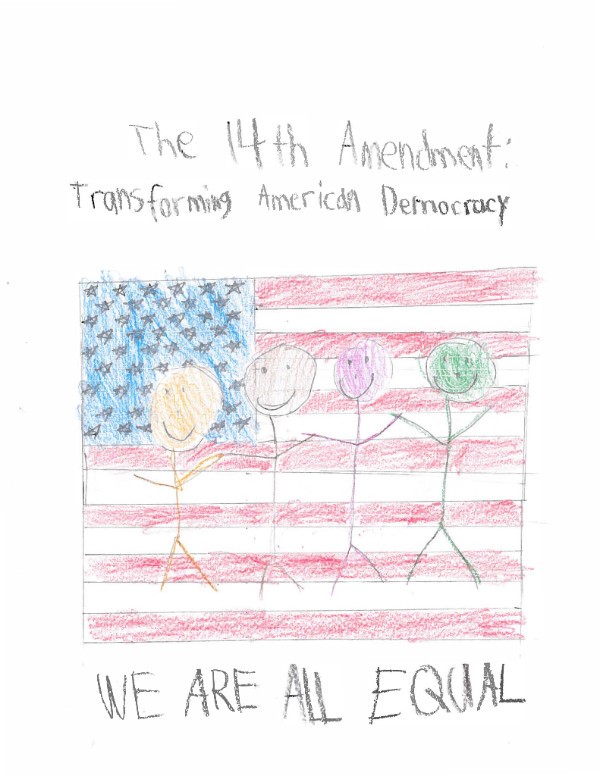 The 14th Amendment:
Transforming American Democracy
WE ARE ALL EQUAL